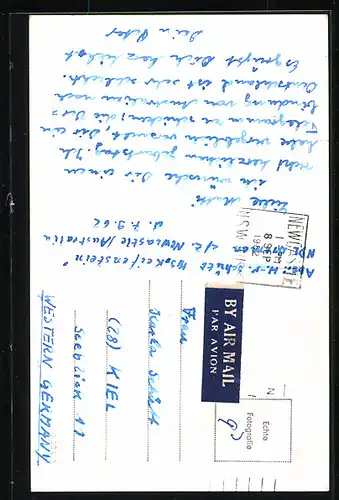 Abs. H.-P. Schütt
"Reifenstein"
z.Z. Newcastle/Australia
d. 7.9.62
Liebe Mutti
ich wünsche Dir einen
recht herzlichen Geburtstag. Ich
habe vergeblich versucht, Dir ein
Telegramm zu schicken; die Ver=
bindung von Australien nach
Deutschland ist sehr schlecht.
Es grüßt Dich herzlichst
Dein Peter
NEWCASTLE
8 SEP
1962
N.S.W.
BY AIR MAIL
PAR AVION
Echte
Fotografie
Frau
Schütt
(28) KIEL
Seeblick 11
WESTERN GERMANY